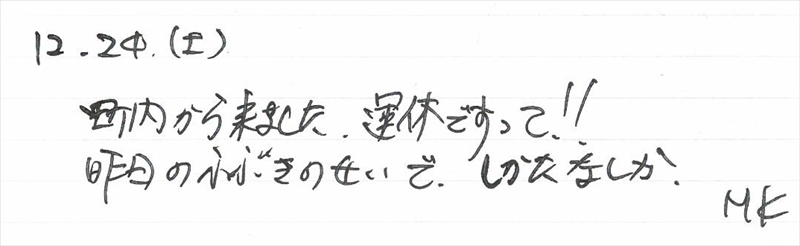 12.24.(土)
町内から来ました.運休ですって!!
昨日のふぶきのせいで.しかたなしか.
MK